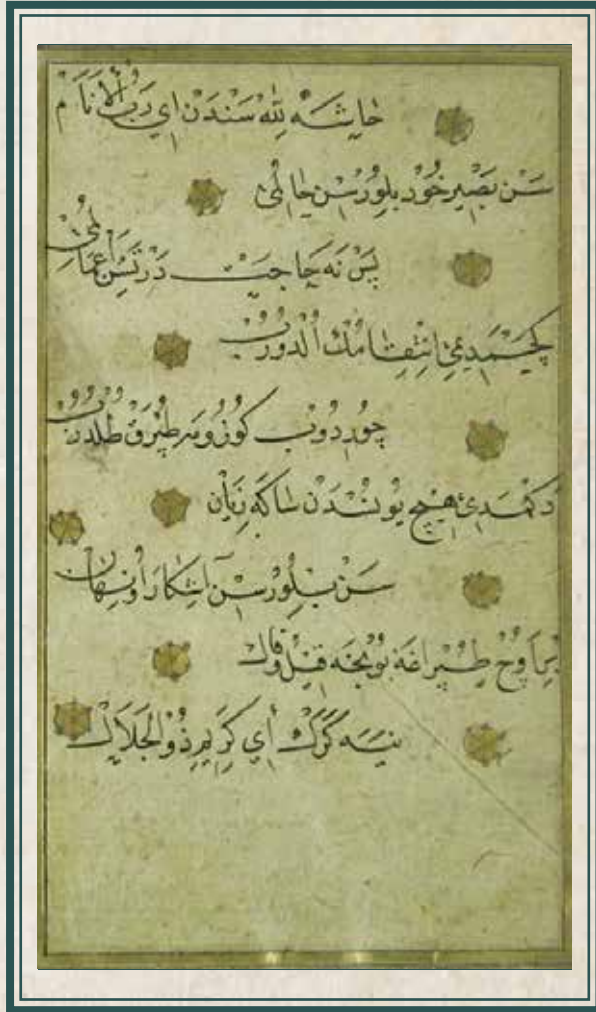 حَاشَهْ لِلّٰهْ سَنْدَنْ اَيْ رَبُّ الْاَنَامْ
سَنْ بَصِيرْ خُودْ بِلُورْسِنْ حَالُمِى
پَسْ نَه حَاجَتْ دَرْتَسِنْ اَعْمَالُمِى
كَچْمَدِى مِى اِنْتِقَامُكْ اُلْدُورُبْ
چُورِدُوبْ كُوزُومَه طُپْرَقْ طُلْدُرُبْ
دَكْمَدِى هِيچْ يُونُسْدَنْ سَاكَه زِيَانْ
سَنْ بِلُورْسِنْ آشِكَارَا وُ نِهَانْ
بِرْ اَوُجْ طُپْرَاغَه بُونْجَه قِيلُ وقَالْ
نِيَه كَرَكْ اَيْ كَرِيمِ ذُو الْجَلَالْ